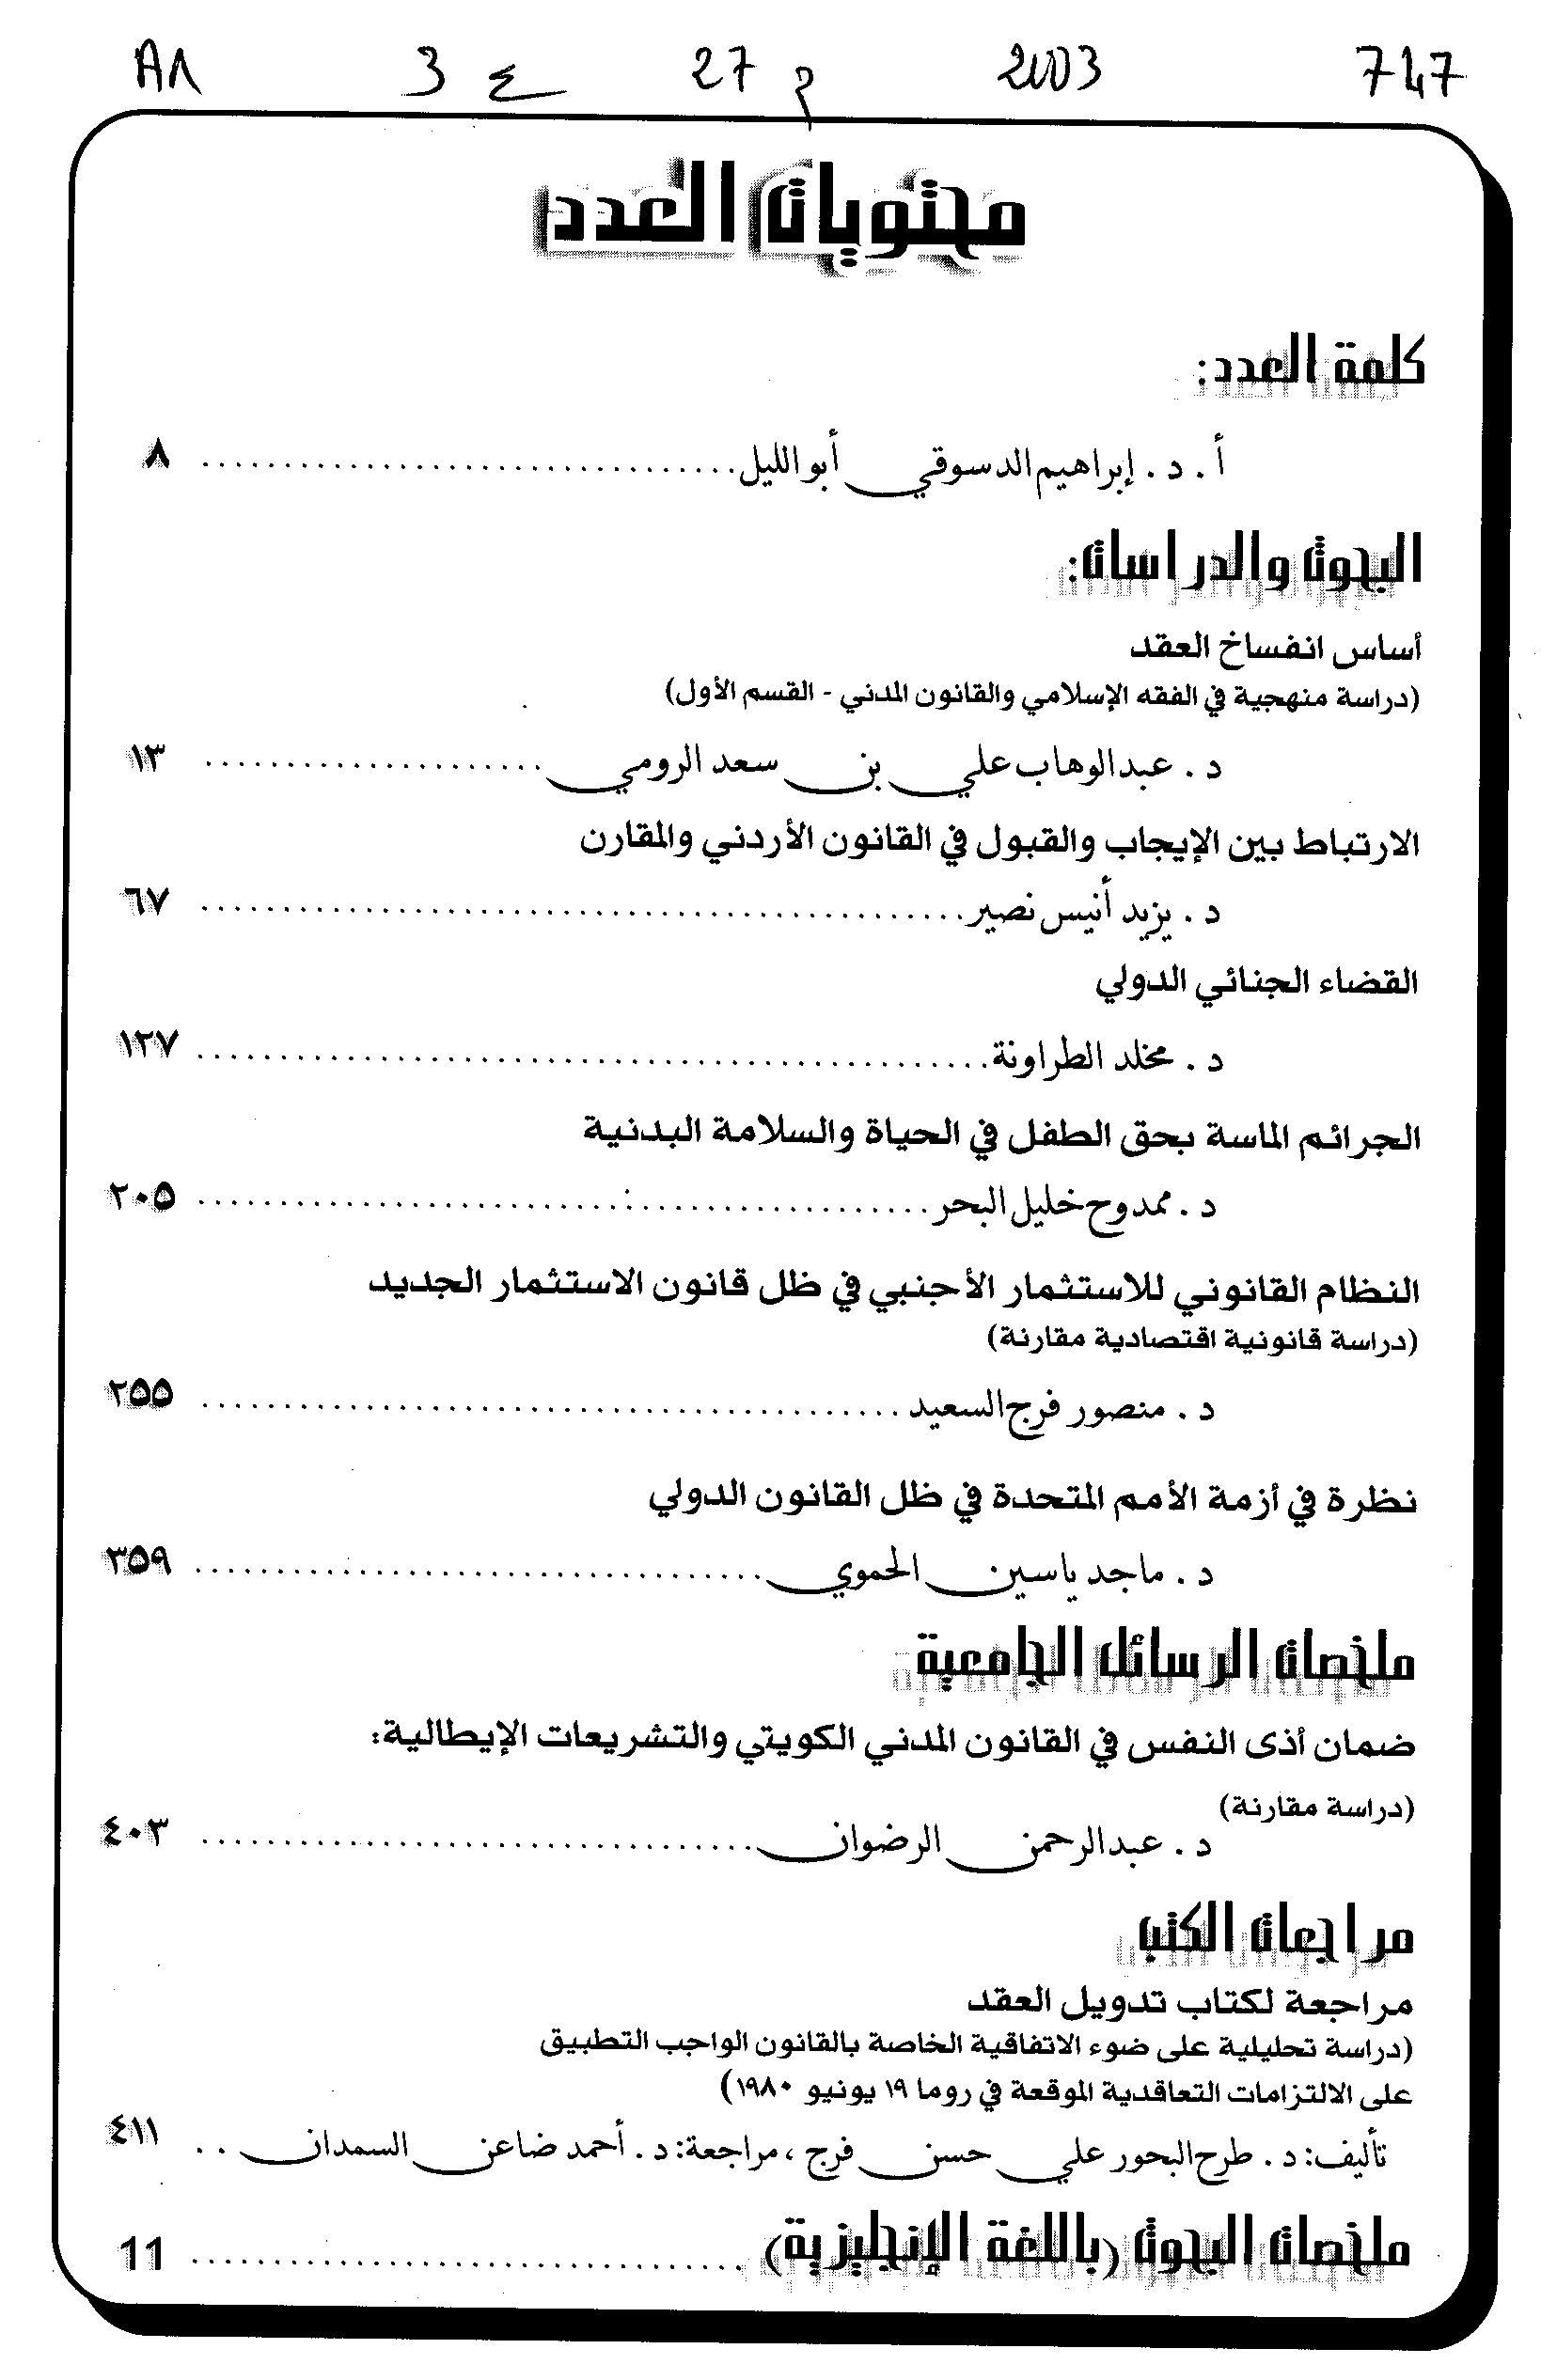 747 2003 م 27 ع 3
محتويات العدد
كلمة العدد:
أ. د. إبراهيم الدسوقي أبو الليل ........ ٨
البحوث والدراسات:
أساس انفساخ العقد
(دراسة منهجية في الفقه الإسلامي والقانون المدني - القسم الأول)
د. عبدالوهاب علي بن سعد الرومي ........ ١٣
الارتباط بين الإيجاب والقبول في القانون الأردني والمقارن
د. يزيد أنيس نصير ........ ٦٧
القضاء الجنائي الدولي
د. مخلد الطراونة ........ ١٢٧
الجرائم الماسة بحق الطفل في الحياة والسلامة البدنية
د. ممدوح خليل البحر ........ ٢٠٥
النظام القانوني للاستثمار الأجنبي في ظل قانون الاستثمار الجديد
(دراسة قانونية اقتصادية مقارنة)
د. منصور فرج السعيد ........ ٢٥٥
نظرة في أزمة الأمم المتحدة في ظل القانون الدولي
د. ماجد ياسين الحموي ........ ٣٥٩
ملخصات الرسائل الجامعية
ضمان أذى النفس في القانون المدني الكويتي والتشريعات الإيطالية:
(دراسة مقارنة)
د. عبدالرحمن الرضوان ........ ٤٠٣
مراجعات الكتب
مراجعة لكتاب تدويل العقد
(دراسة تحليلية على ضوء الاتفاقية الخاصة بالقانون الواجب التطبيق
على الالتزامات التعاقدية الموقعة في روما ١٩ يونيو ١٩٨٠)
تأليف: د. طرح البحور علي حسن فرج، مراجعة: د. أحمد ضاعن السمدان .. ٤١١
ملخصات البحوث (باللغة الإنجليزية) ........ 11